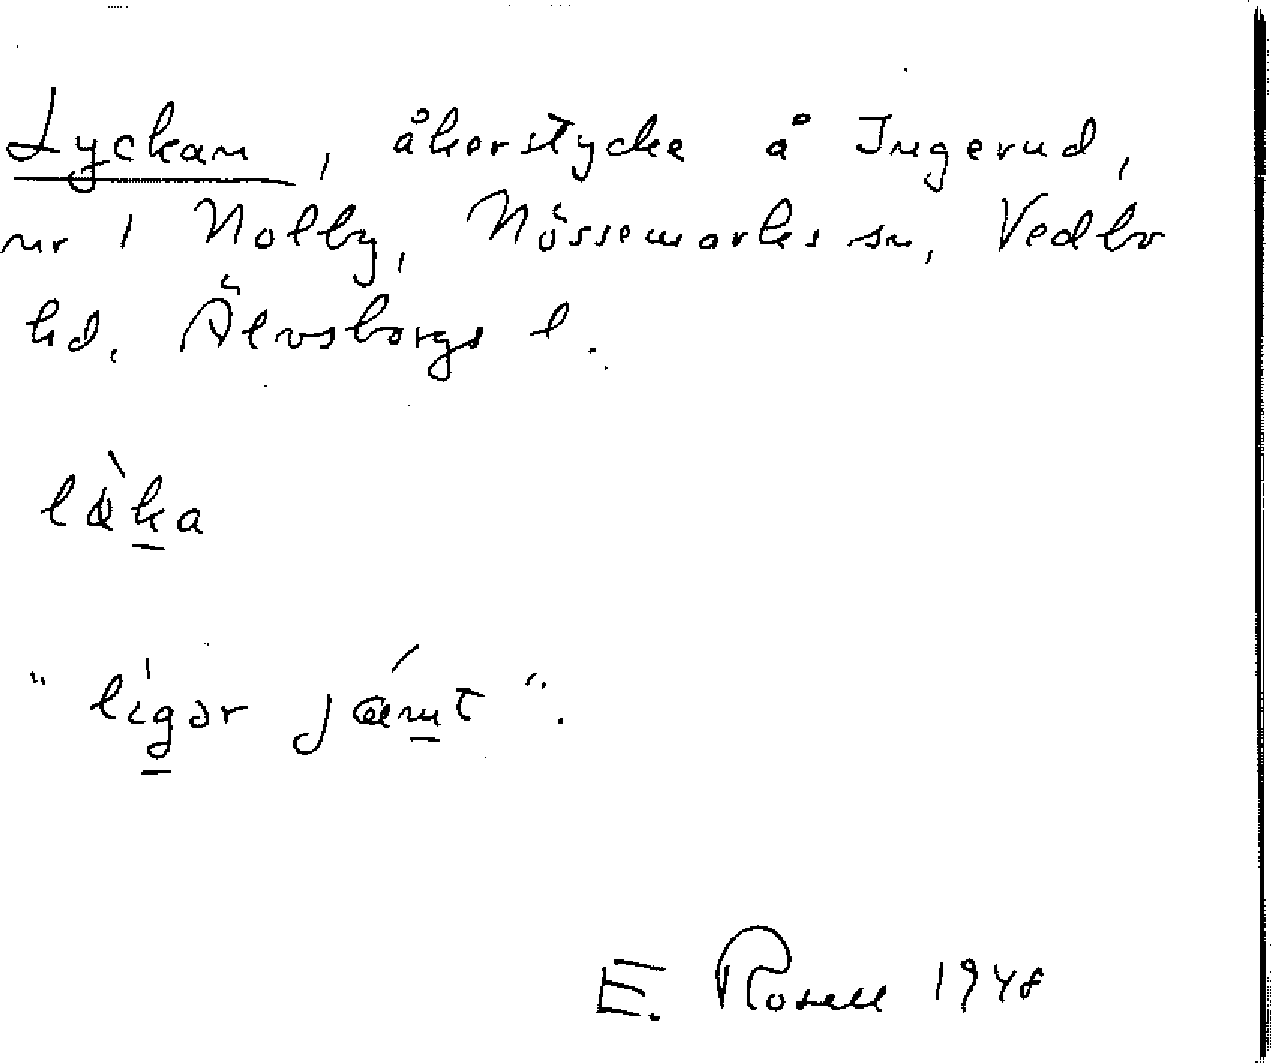 Lyckan, åkerstycke å Ingerud,
nr 1 Nolby, Nössemarks sn, Vedbo
hd. Älvsborgs l.
låka
"ligər jämt".
E. Rosell 1948